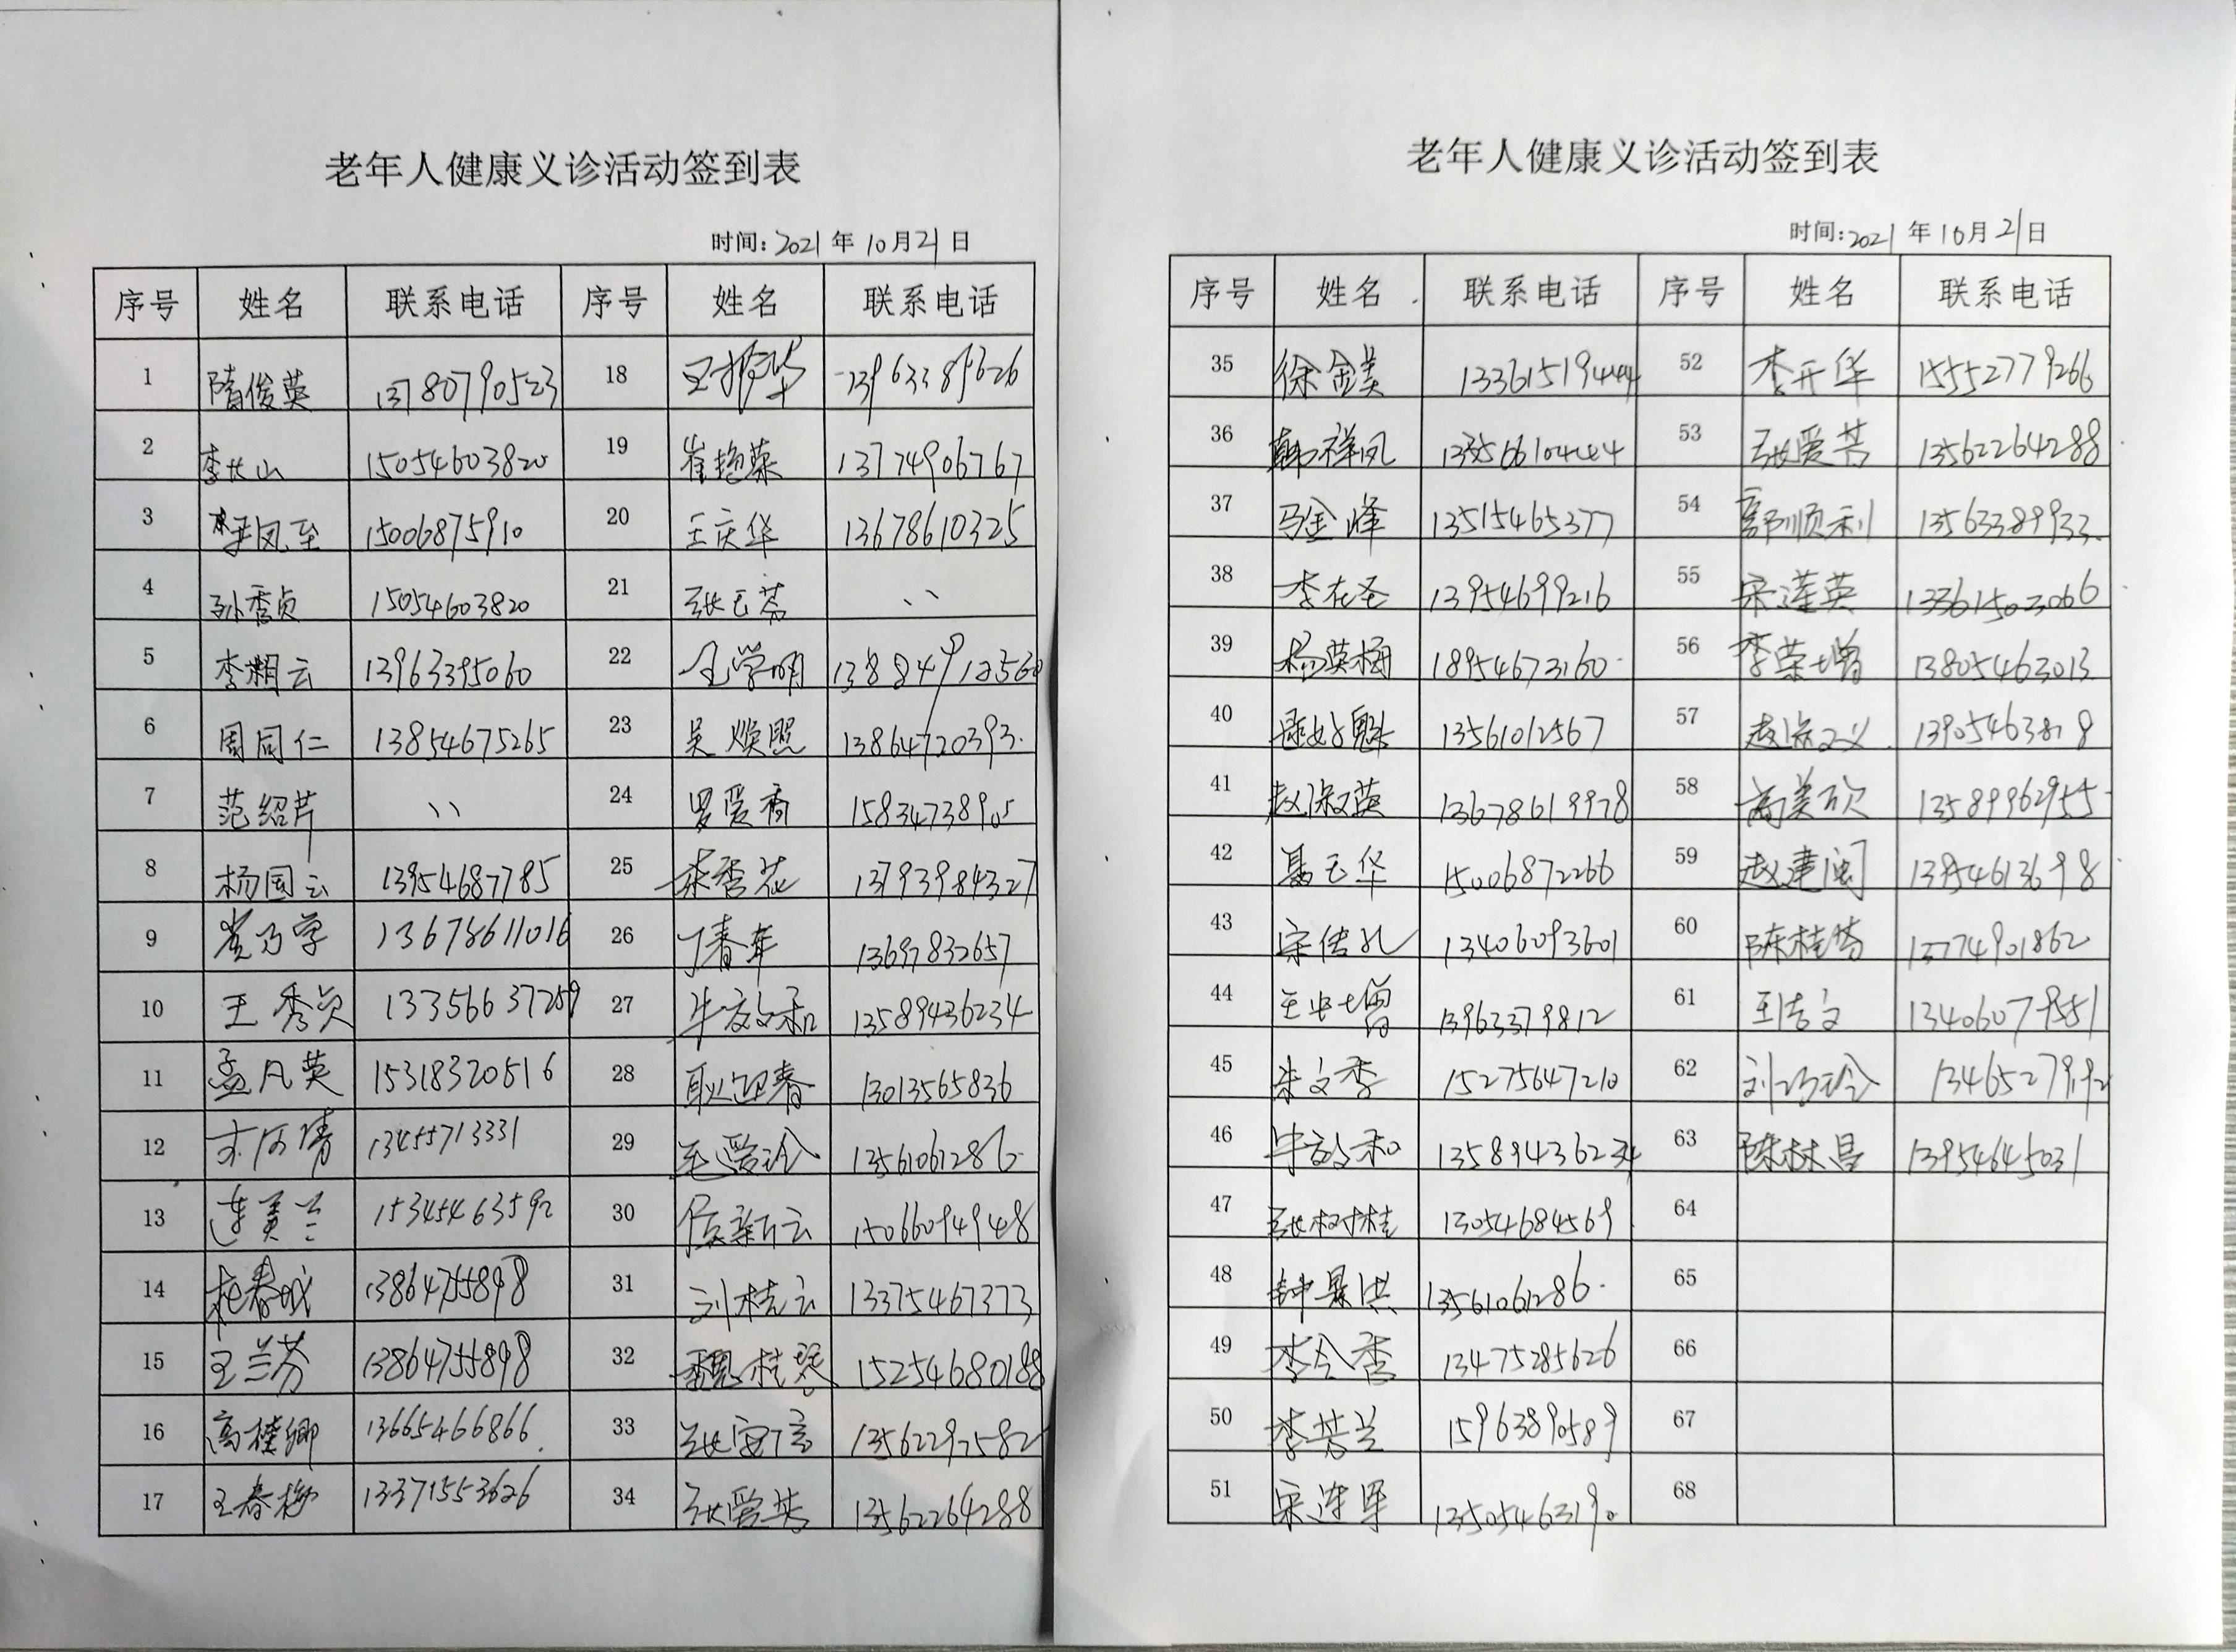 老年人健康义诊活动签到表
时间:2021年10月21日
序号 姓名 联系电话 序号 姓名 联系电话
1 隋俊英 13780790523 18 13963389626
2 李长山 15054603820 19 崔艳荣 13774906767
3 李凤至 15006875910 20 王庆华 13678610325
4 孙秀贞 15054603820 21 张玉芬 、、
5 李湘云 13963395060 22 13884912560
6 周同仁 13854675265 23 吴焕照 13864720393.
7 范绍芹 、、 24 罗爱香 15834738905
8 杨国云 13954687785 25 秀花 13793984327
9 崔乃学 13678611016 26 丁春年 13697832657
10 王秀贞 13356637259 27 牛效和 13589436234
11 孟凡英 15318320516 28 耿迎春 13013565836
12 13455713331 29 毛爱珍 13561061286
13 连美兰 15345463592 30 侯新云 15066094948
14 13864755898 31 刘桂云 13375467373
15 王兰芬 13864755898 32 魏桂琴 15254680188
16 高桂卿 13665466866. 33 张安信 13562297582
17 王春梅 13371553626 34 张爱芳 13562264288
老年人健康义诊活动签到表
时间:2021年10月21日
序号 姓名 联系电话 序号 姓名 联系电话
35 徐金美 13361519444 52 李开华 15552779266
36 韩祥凤 13356610444 53 张爱芳 13562264288
37 马金峰 13515465377 54 郭顺利 13563389933.
38 李在圣 13954699216 55 宋莲英 13361503066
39 杨英梅 18954673160 56 李荣增 13805463013
40 13561012567 57 赵 义
41 赵淑英 13678619978 58 高美欣 13589962955
42 聂玉华 15006872266 59 赵建闽 13954613698
43 宋传孔 13406093601 60 陈桂芬 13774901862
44 王忠增 13963379812 61 王洁文 13406079551
45 宋文季 15275647210 62 刘巧玲
46 牛效和 13589436234 63 陈林昌 13954645031
47 张树桂 13054684569 64
48 钟景洪 13561061286. 65
49 李令香 13475285626 66
50 李芳兰 15963890589 67
51 宋连军 13505463190 68